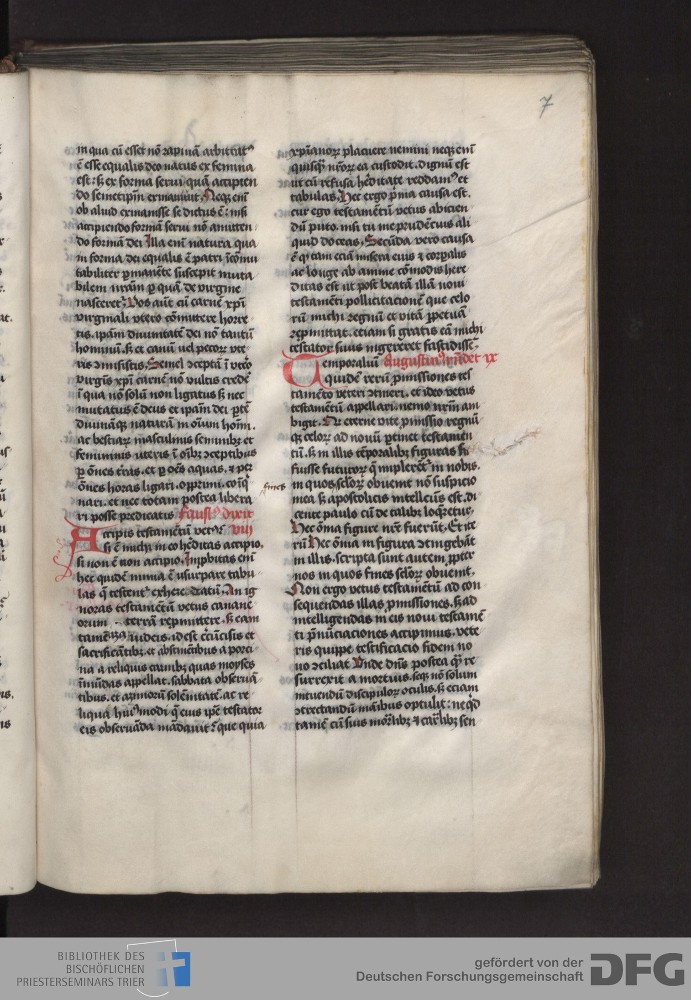 7
in qua cū esset nō rapinā arbitrat᷒
ē esse equalis deo natus ex femina
est: s; ex forma serui quā accipien
do semetip̄m exinaniuit. Neq; eni
ob aliud exinanisse se dictus ē: nisi
accipiendo formā serui nō amitten
do formā dei. Illa eni natura qua
in forma dei equalis ē patri īcōmu
tabiliter p̱manēte suscepit muta
bilem nrām p̱ quā de virgine
nasceret᷒. Vos aūt cū carnē xp̄i
virginali vtero cōmittere horre
tis. ip̄am diuinitatē dei nō tantū
hominū. s; et canū vel pecorū vte
ris ɔmisistis. Semel ɔceptā ī vtero
virginis xp̄i carnē nō vultis crede
ī qua nō solū non ligatus s; nec
mutatus ē deus et ip̄am dei p̱tē
diuinaq̄; naturā in oīum homī.
ac bestiar̄ masculinis seminib; et
femininis vteris ī oīb; ɔceptibus
p̱ ōnes t̄ras. et p̱ oēs aquas. et per
ōnes horas ligari. opprimi. coīq̄
nari. et nec totam postea libera
ri posse predicatis Faust᷒ dixit
Accipis testamētū vet᷒ viii
si ē michi in eo hēditas accipio.
si non ē non accipio. Inp̱bitas eni
hec quidē nimia ē vsurpare tabu
las q̄ testent᷒ exherēdatū. An ig
noras testamētū vetus canane
orum terrā repmittere. s; eam
tamē iudeis. id est c̄cūcisis et
sacrificātib; et abstinētibus a porci
na a reliquis carnib; quas moyses
īmūdas appellat. sabbata obseruā
tibus. et azimorū solēnitatē. ac re
liqua hui᷒modi q̄ eius ip̄e testator
eis obseruāda mādauit: que quia
xp̄ianor̄ placuere nemini neq; eni
quisq̄ nr̄or̄ ea custodit. dignū est
ut cū refusa hēditate reddam᷒ et
tabulas. Hec ergo p̄ma causa est.
cur ego testamētū vetus abicien
dū puto. nisi tu me prudēcius ali
quid doceas. Secūda vero causa
ē q̄ tam eciā misera euis ⁊ corp̱alis
ac longe ab anime cōmodis here
ditas est ut post beatā illā noui
testamēti pollicitacionē que celo
rū michi regnū et vitā p̱petuā
repmittat. etiam si gratis eā michi
testator suus ingereret fastidisse᷒
Temporaliū Augustin᷒ rn̄det ix
quidē rerū p̄missiones tes
tamēto veteri ɔtineri. et ideo vetus
testamētū appellari. nemo nrm̄ am
bigit. Et q̄ eterne vite p̄missio regnū
q; celor̄ ad nouū p̱tinet testamēn
tū. s; in illis tēporalib; figuras
fuisse futuror̄ q̄ implerēt᷒ in nobis.
fines in quos sc̄lor̄ obuenit nō suspicio
mea s; apostolicus intellectus est. di
cente paulo cū de talib; loq̄retur.
Hec ōnia figure nr̄e fuerūt. Et ite
rū Hec ōnia in figura ɔtingebāt
in illis. scripta sunt autem p̱pter
nos in quos fines sc̄lor̄ obuenit.
Non ergo vetus testamētū ad con
sequendas illas p̄missiones. s; ad
intelligendas in eis noui testamē
ti p̄nūciaciones accipimus. vete
ris quippe testificacio fidem no
uo ɔciliat. Vnde dn̄s postea q̄ re
surrexit a mortuis. seq̄; nō solum
intuendū discipulor̄ oculis. s; eciam
ɔtrectandū maībus optulit: ne q̄d
tamē cū suis mor̄lib; ⁊ car̄lib; sen
BIBLIOTHEK DES
BISCHÖFLICHEN
PRIESTERSEMINARS TRIER
gefördert von der
Deutschen Forschungsgemeinschaft
DFG